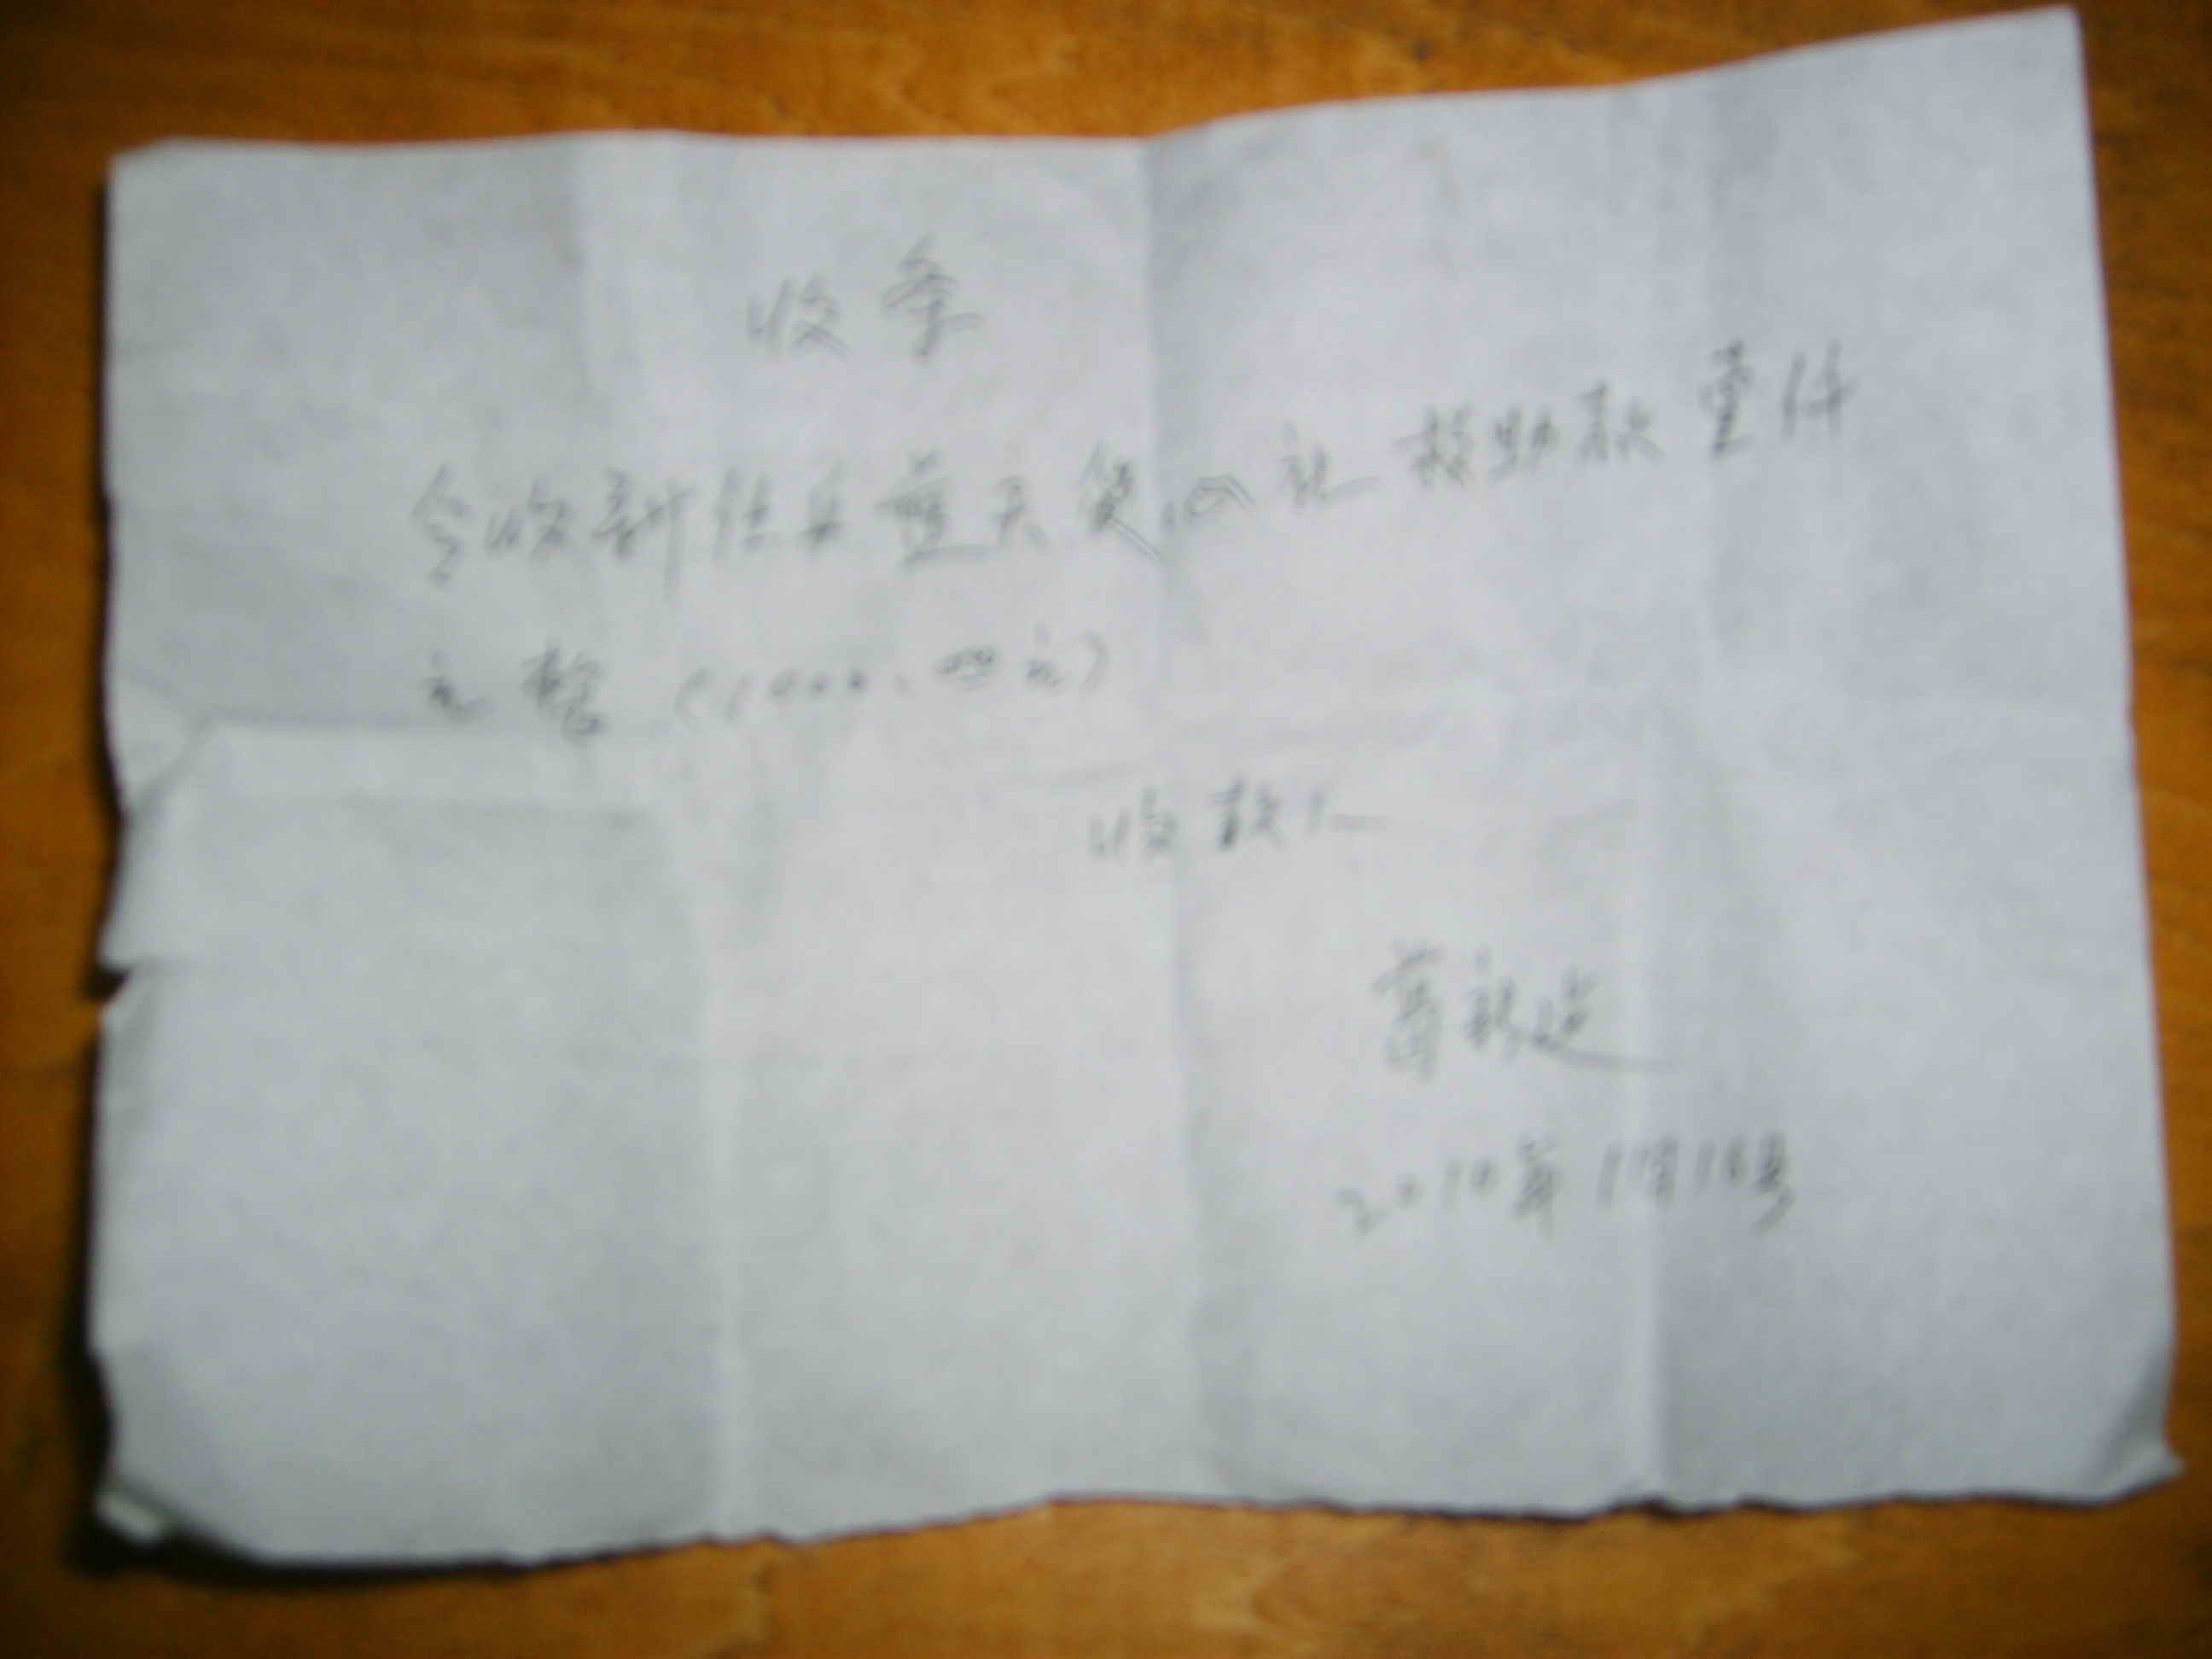 收条
今收到 蓝天爱心社 救助款壹仟
元整（1000.00元）
收款人
2010年1月18号